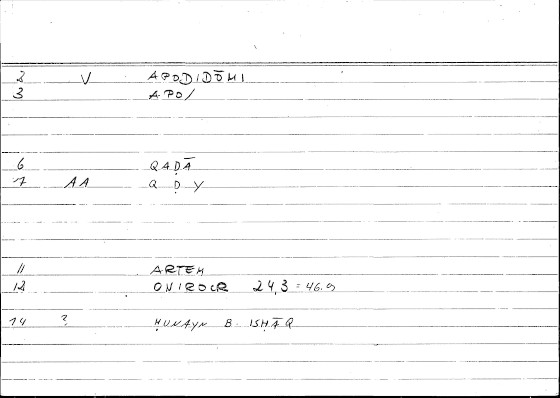 2 V APODIDŌMI
3 APO/
6 QADĀ
7 AA Q Ḍ Y
11 ARTEM
12 ONIROCR 24,3 = 46.9
14 ? ḤUNAYN B. ISḤĀQ